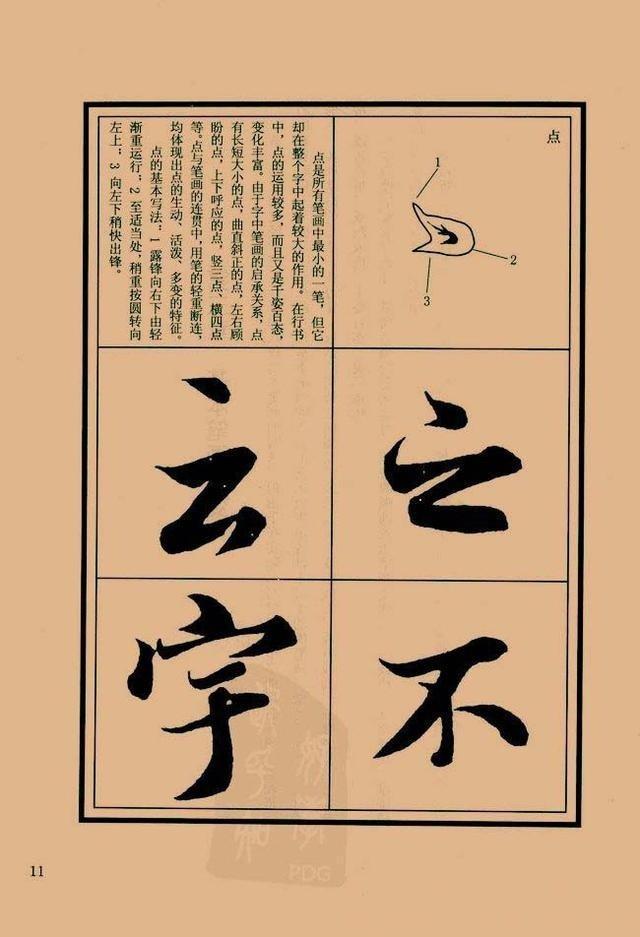 点
1
2
3
点是所有笔画中最小的一笔，但它
却在整个字中起着较大的作用。在行书
中，点的运用较多，而且又是千姿百态，
变化丰富。由于字中笔画的启承关系，点
有长短大小的点，曲直斜正的点，左右顾
盼的点，上下呼应的点，竖三点、横四点
等。点与笔画的连贯中，用笔的轻重断连，
均体现出点的生动、活泼、多变的特征。
点的基本写法：1 露锋向右下由轻
渐重运行；2 至适当处，稍重按圆转向
左上；3 向左下稍快出锋。
之
不
云
宇
PDG
11